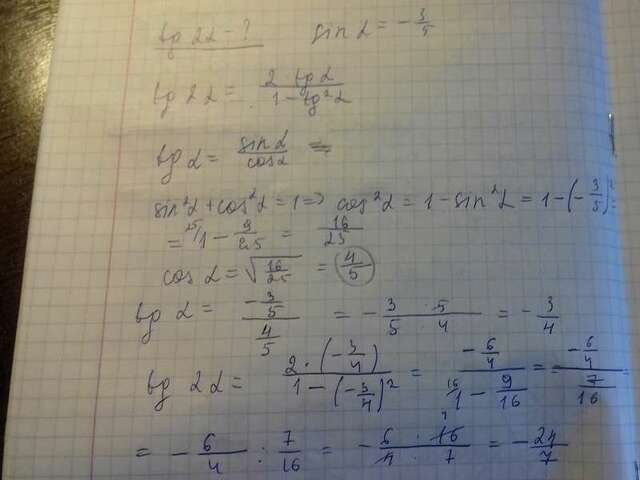 tg 2α - ? sin α = - 3/5
tg 2α = 2 · tg α / 1 - tg² α
tg α = sin α / cos α =
sin² α + cos² α = 1 => cos² α = 1 - sin² α = 1 - (- 3/5)² =
= 25/ 1 - 9/25 = 16/25
cos α = √ 16/25 = 4/5
tg α = - 3/5 / 4/5 = - 3 · 5 / 5 · 4 = - 3/4
tg 2α = 2 · (- 3/4) / 1 - (- 3/4)² = - 6/4 / 16/ 1 - 9/16 = = - 6/4 / 7/16 =
= - 6/4 : 7/16 = - 6 · 16 4 / 4 · 7 = - 24/7